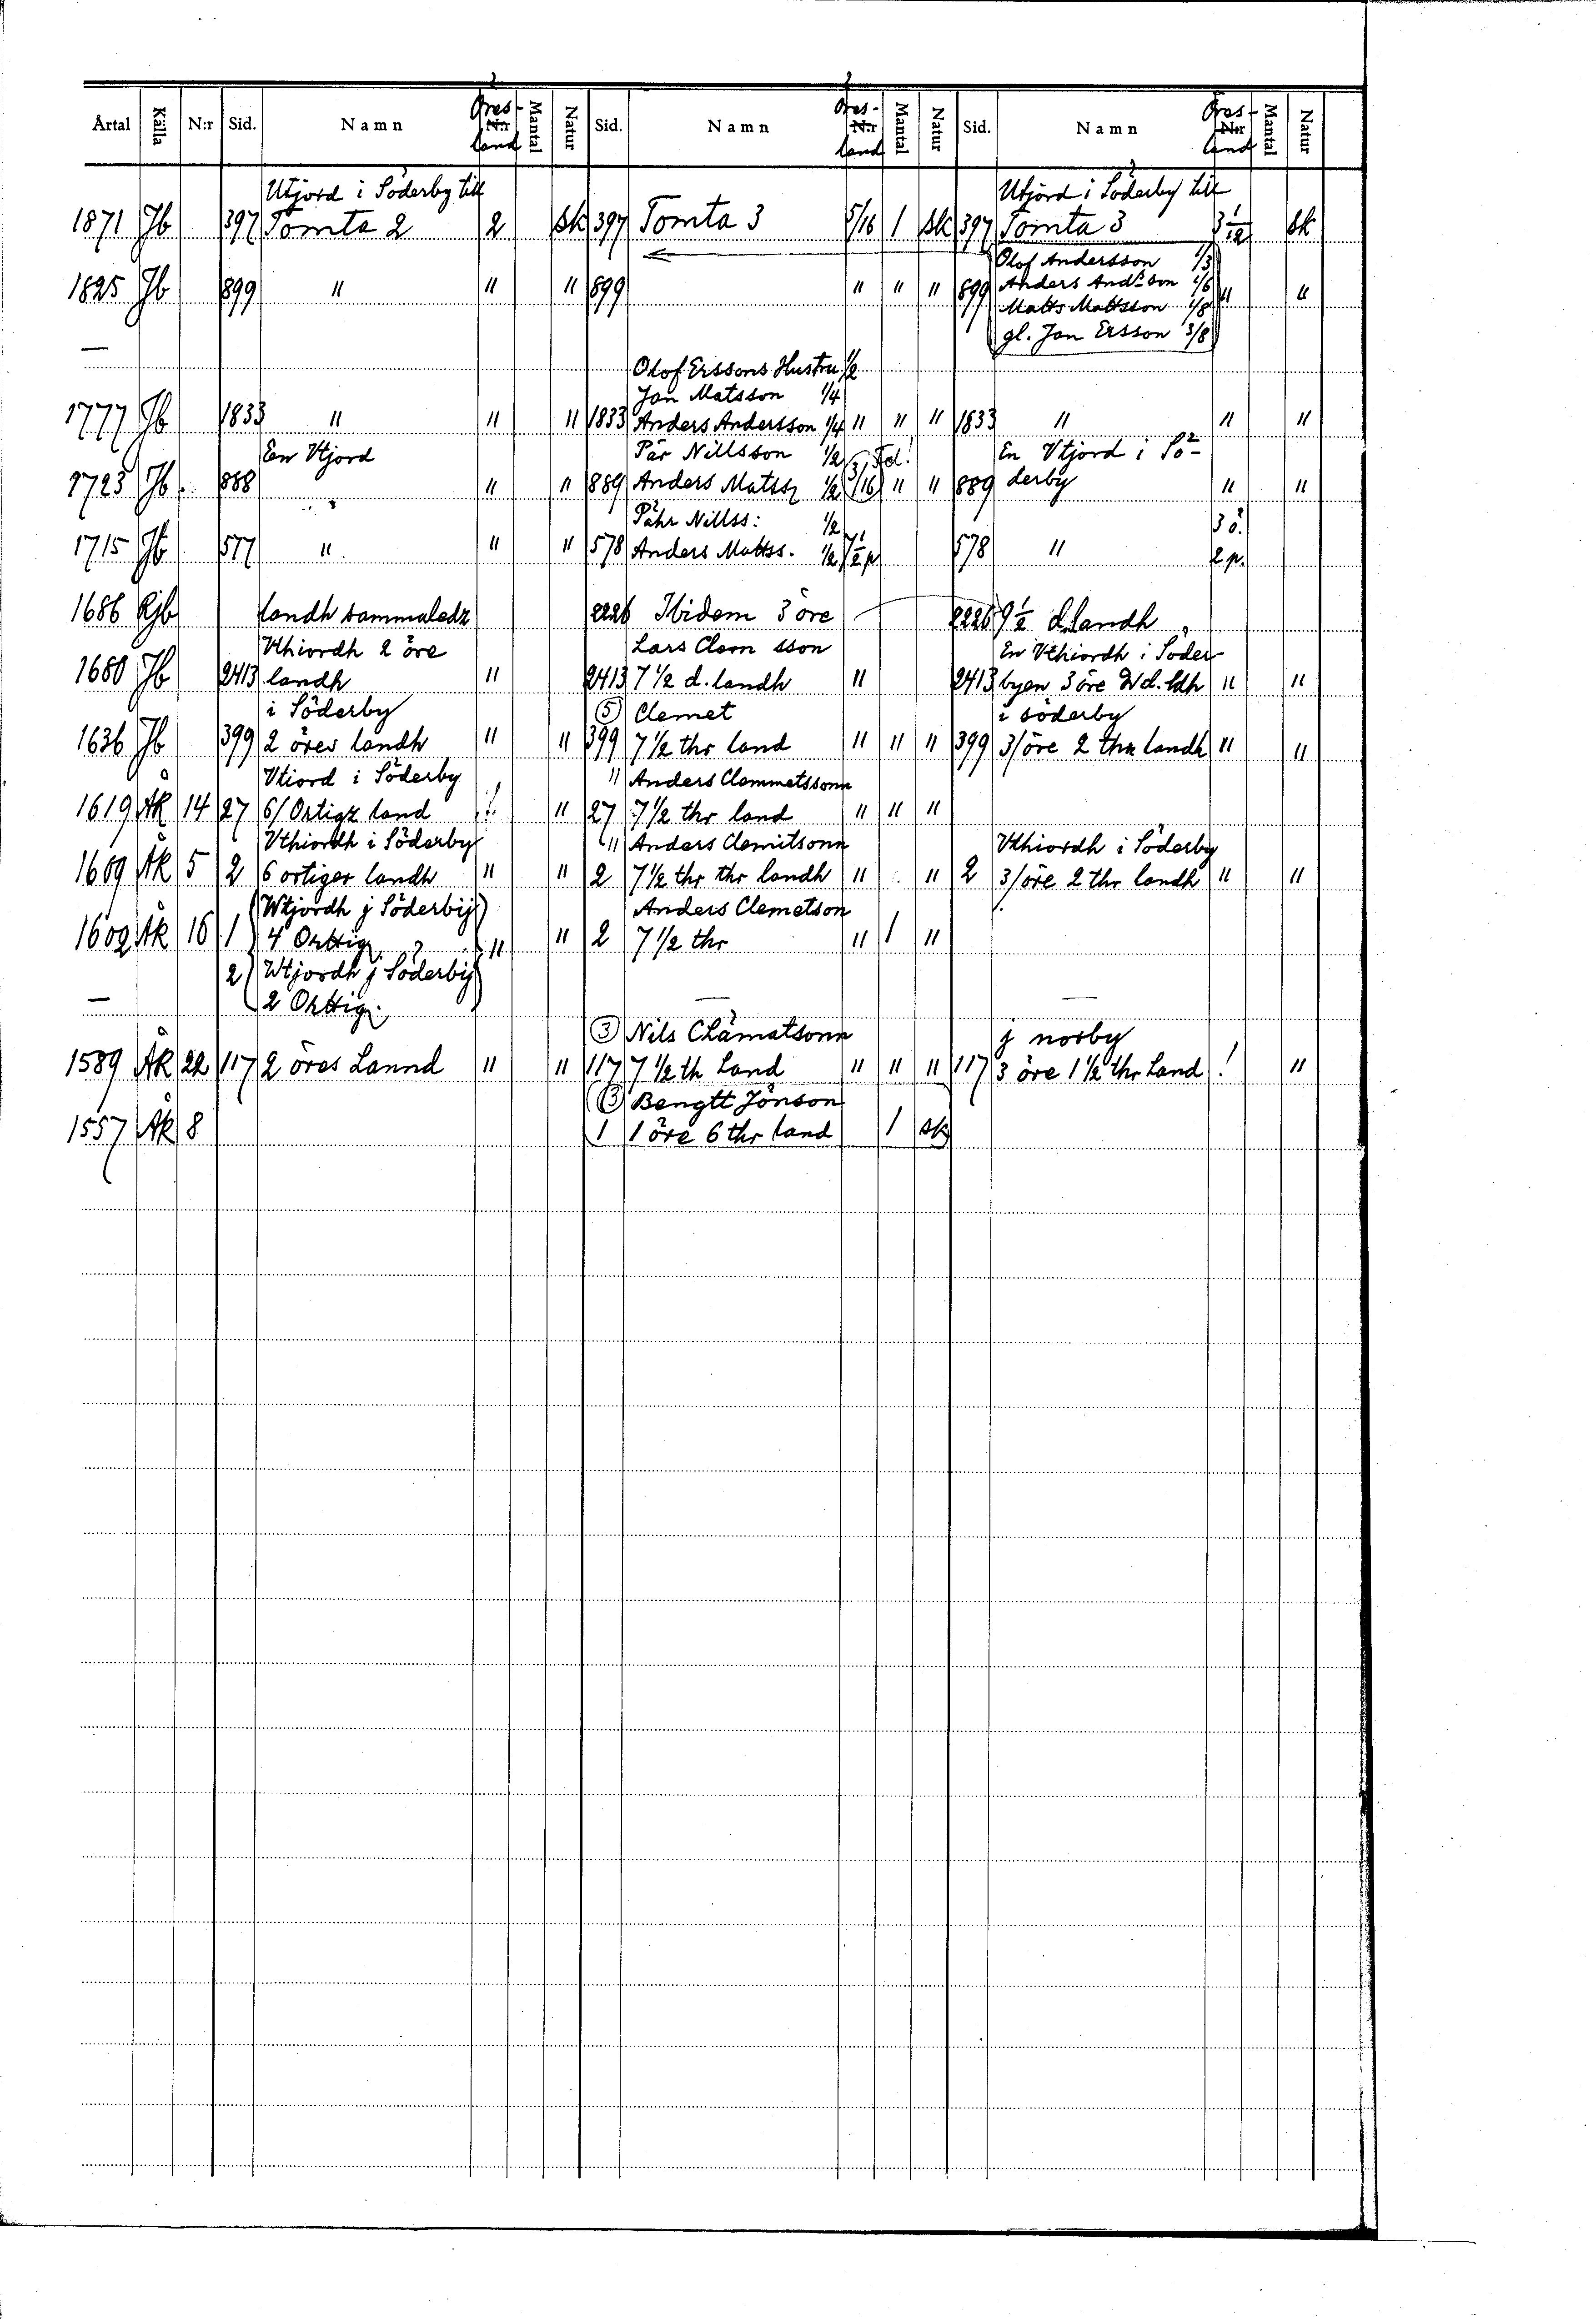 Årtal Källa N:r Sid. Namn Öres- N:r land Mantal Natur Sid. Namn Öres- N:r land Mantal Natur Sid. Namn Öres- N:r land Mantal Natur
Utjord i Söderby till Utjord i Söderby till
1871 Jb 397 Tomta 2 2 sk 397 Tomta 3 5/16 1 sk 397 Tomta 3 3 1/12 sk
Olof Andersson 1/3
1825 Jb 899 " " " 899 " " " 899 Anders And:son 1/6 " "
Matts Mattsson 1/8
gl. Jan Ersson 3/8
—
Olof Erssons Hustru 1/2
Jan Matsson 1/4
1777 Jb 1833 " " " 1833 Anders Andersson 1/4 " " " 1833 " " "
En Vtjord Pär Nillsson 1/2 En Vtjord i Sö-
1725 Jb 888 " " 889 Anders Matss 1/2 " " 889 derby " "
Pähr Nillss: 1/2 3 ö.
1715 Jb 577 " " " 578 Anders Mattss. 1/2 578 " 2 p.
1686 Rjb landh sammaledz 2226 Ibidem 3 öre 2226 9 1/2 d. landh
Vthiordh 2 öre Lars Clem sson En Vthiordh i Söder-
1680 Jb 2413 landh " 2413 7 1/2 d. landh " 2413 byen 3 öre 2 d. ldh " "
i Söderby (5) Clemet i söderby
1636 Jb 399 2 öres landh " " 399 7 1/2 thr land " " " 399 3/öre 2 thr landh " "
Vtiord i Söderby " Anders Clemmetssonn
1619 Åk 14 27 6/Ortigz land ! " 27 7 1/2 thr land " " "
Vthiordh i Söderby " Anders Clemitsonn Vthiordh i Söderby
1609 Åk 5 2 6 ortiger landh " " 2 7 1/2 thr thr landh " " 2 3/öre 2 thr landh " "
Wtjordh j Söderbij Anders Clemetson
1602 Åk 16 1 4 Orttig " " 2 7 1/2 thr " 1 "
2 Wtjordh j Söderbij
— 2 Orttig. — —
(3) Nils Clämatsonn j norby
1589 Åk 22 117 2 öres Lannd " " 117 7 1/2 th Land " " " 117 3 öre 1 1/2 thr Land ! "
(3) Bengtt Jönson
1557 Åk 8 1 1 öre 6 thr land 1 sk